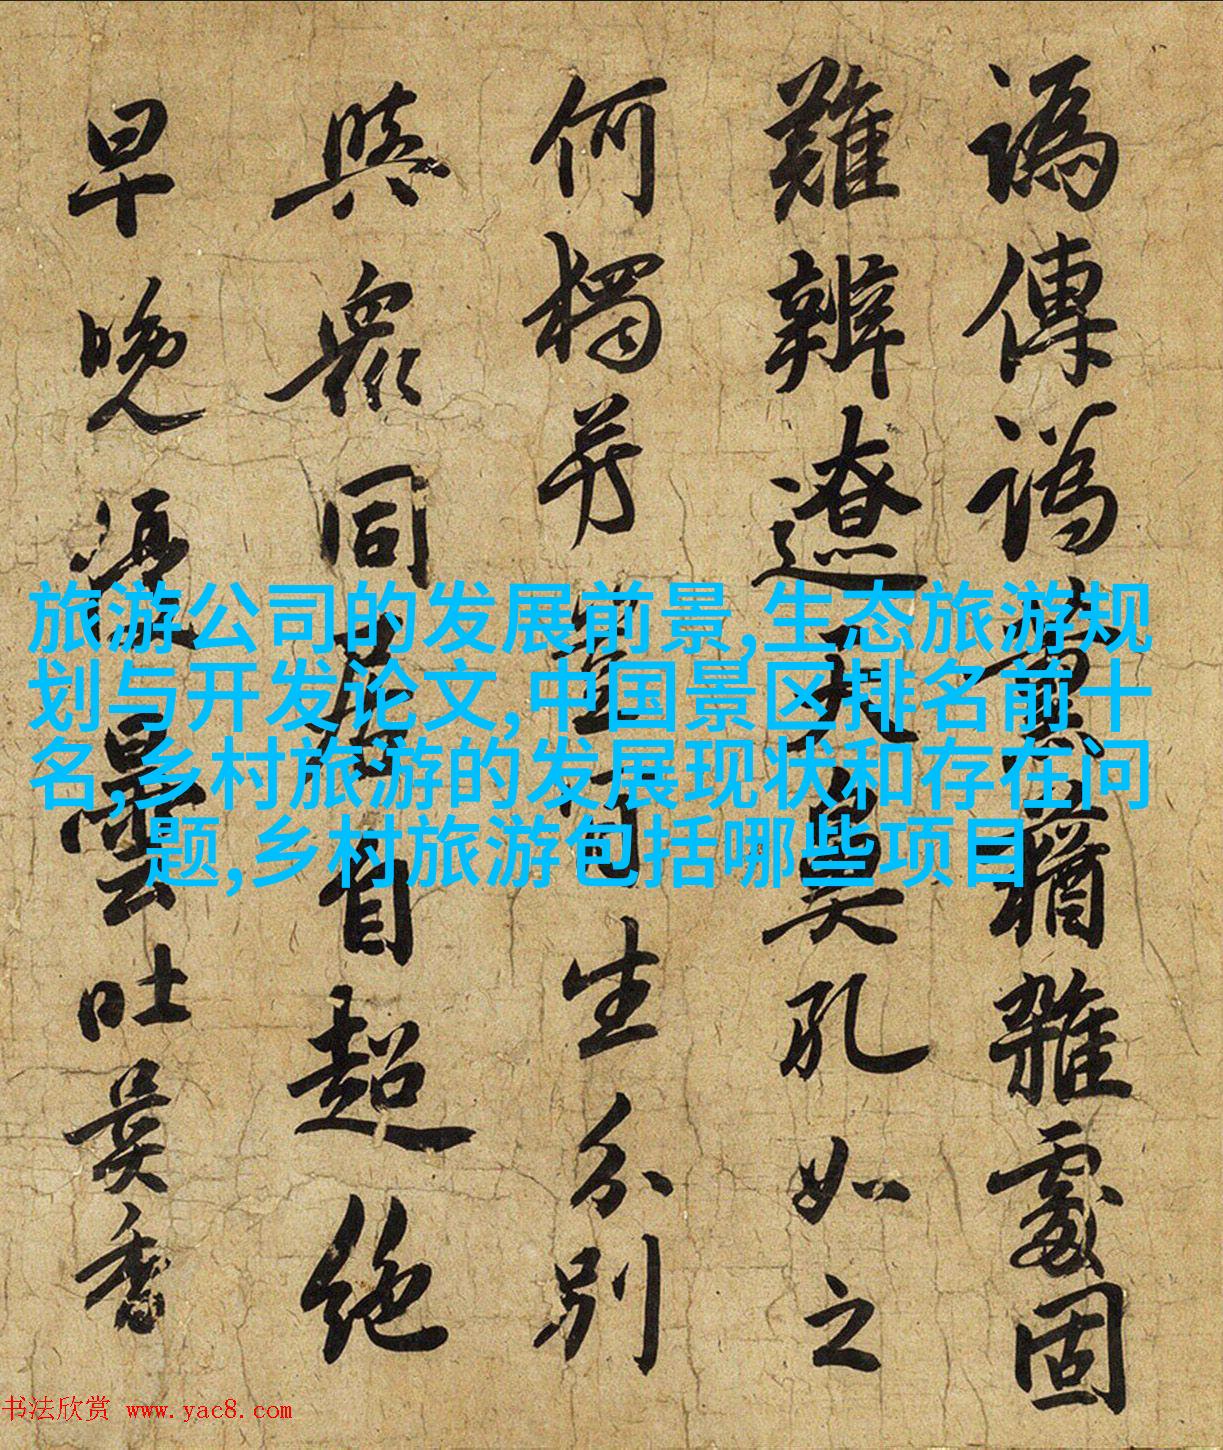 譌傳譌薰蕕雜處固
難辨遼天鼻孔如之
何獨芳豈肯生分別
與衆同居自超絕
早晚優曇吐異香
旅游公司的发展前景,生态旅游规
划与开发论文,中国景区排名前十
名,乡村旅游的发展现状和存在问
题,乡村旅游包括哪些项目
书法欣赏 www.yac8.com